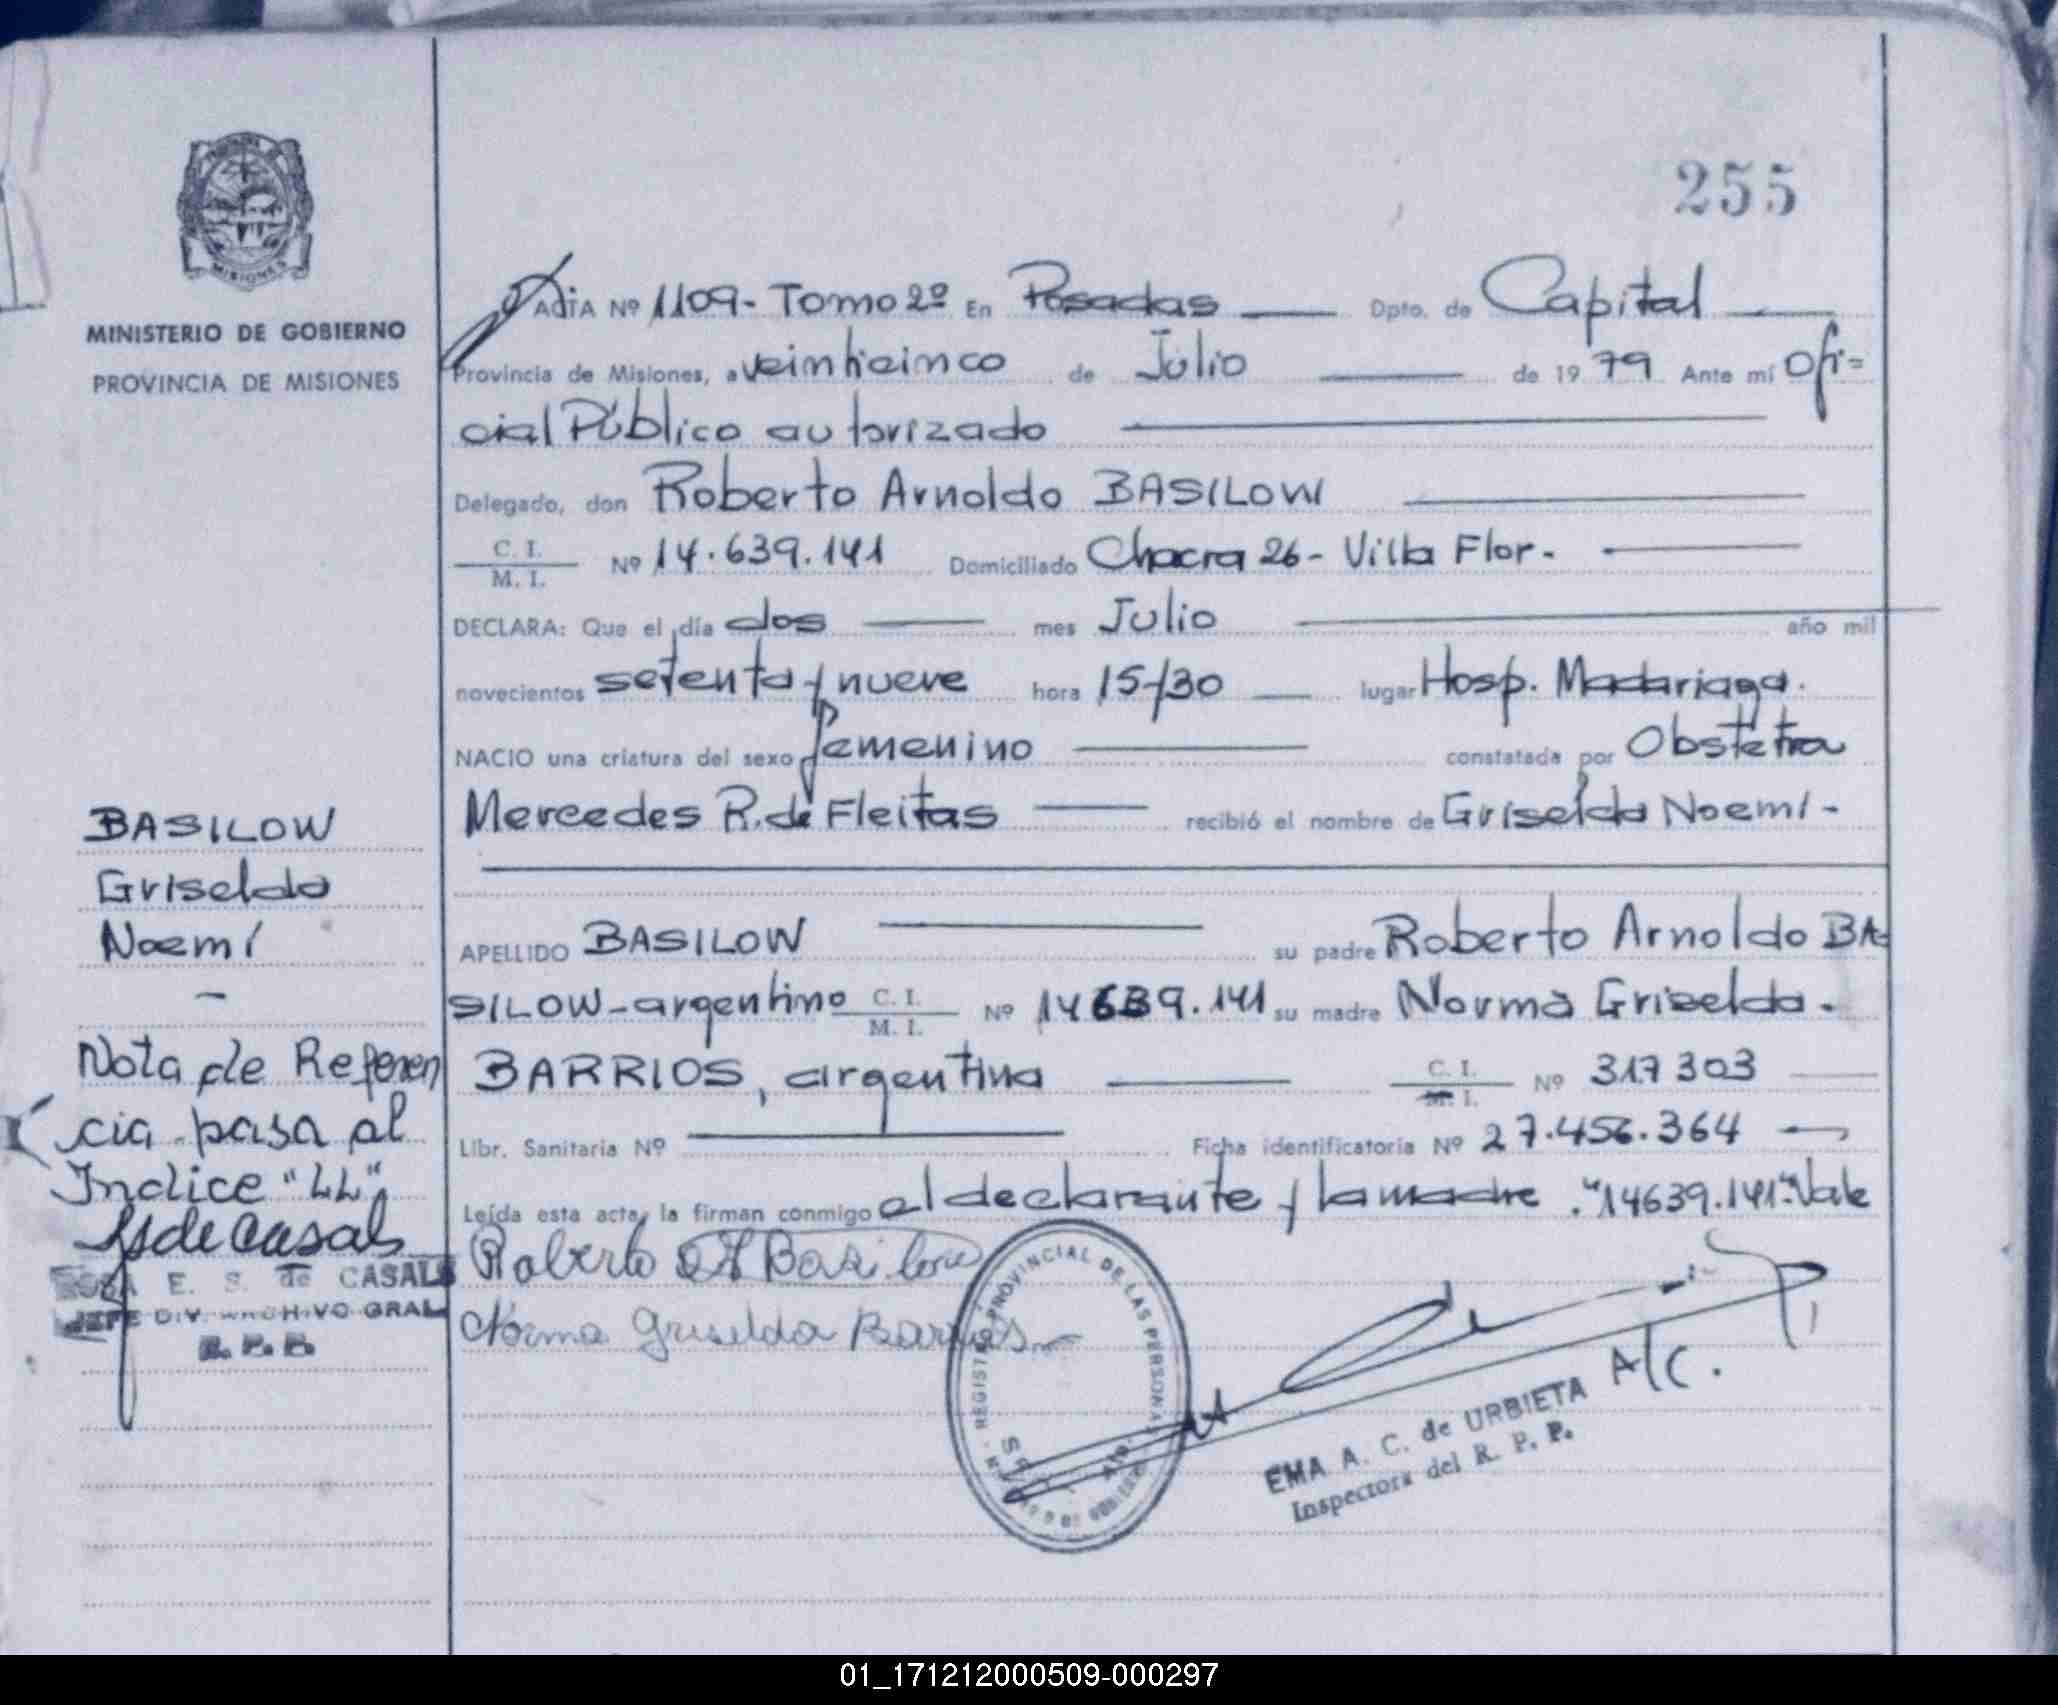 255
MINISTERIO DE GOBIERNO
PROVINCIA DE MISIONES
ACTA Nº 1109- Tomo 2º En Posadas Dpto. de Capital
Provincia de Misiones, a veinticinco de Julio de 1979 Ante mí Ofi=
cial Público autorizado
Delegado, don Roberto Arnoldo BASILOW
C. I.
M. I. Nº 14.639.141 Domiciliado Chacra 26- Villa Flor.
DECLARA: Que el día dos mes Julio año mil
novecientos setenta y nueve hora 15/30 lugar Hosp. Madariaga.
NACIO una criatura del sexo femenino constatada por Obstetra
Mercedes R. de Fleitas recibió el nombre de Griselda Noemí-
APELLIDO BASILOW su padre Roberto Arnoldo BA-
SILOW-argentino C. I. M. I. Nº 14639.141 su madre Norma Griselda.
BARRIOS, argentina C. I. M. I. Nº 317303
Libr. Sanitaria Nº Ficha identificatoria Nº 27.456.364
Leída esta acta, la firman conmigo el declarante y la madre. "14639.141": Vale
Roberto A Basilow
Norma Griselda Barrios
BASILOW
Griselda
Noemí
-
Nota de Referen
cia pasa al
Indice "LL"
de Casals
E. S. de CASALS
JEFE DIV. ARCHIVO GRAL
R. P. P.
REGISTRO PROVINCIAL DE LAS PERSONAS
A/C.
EMA A. C. de URBIETA
Inspectora del R. P. P.
01_171212000509-000297